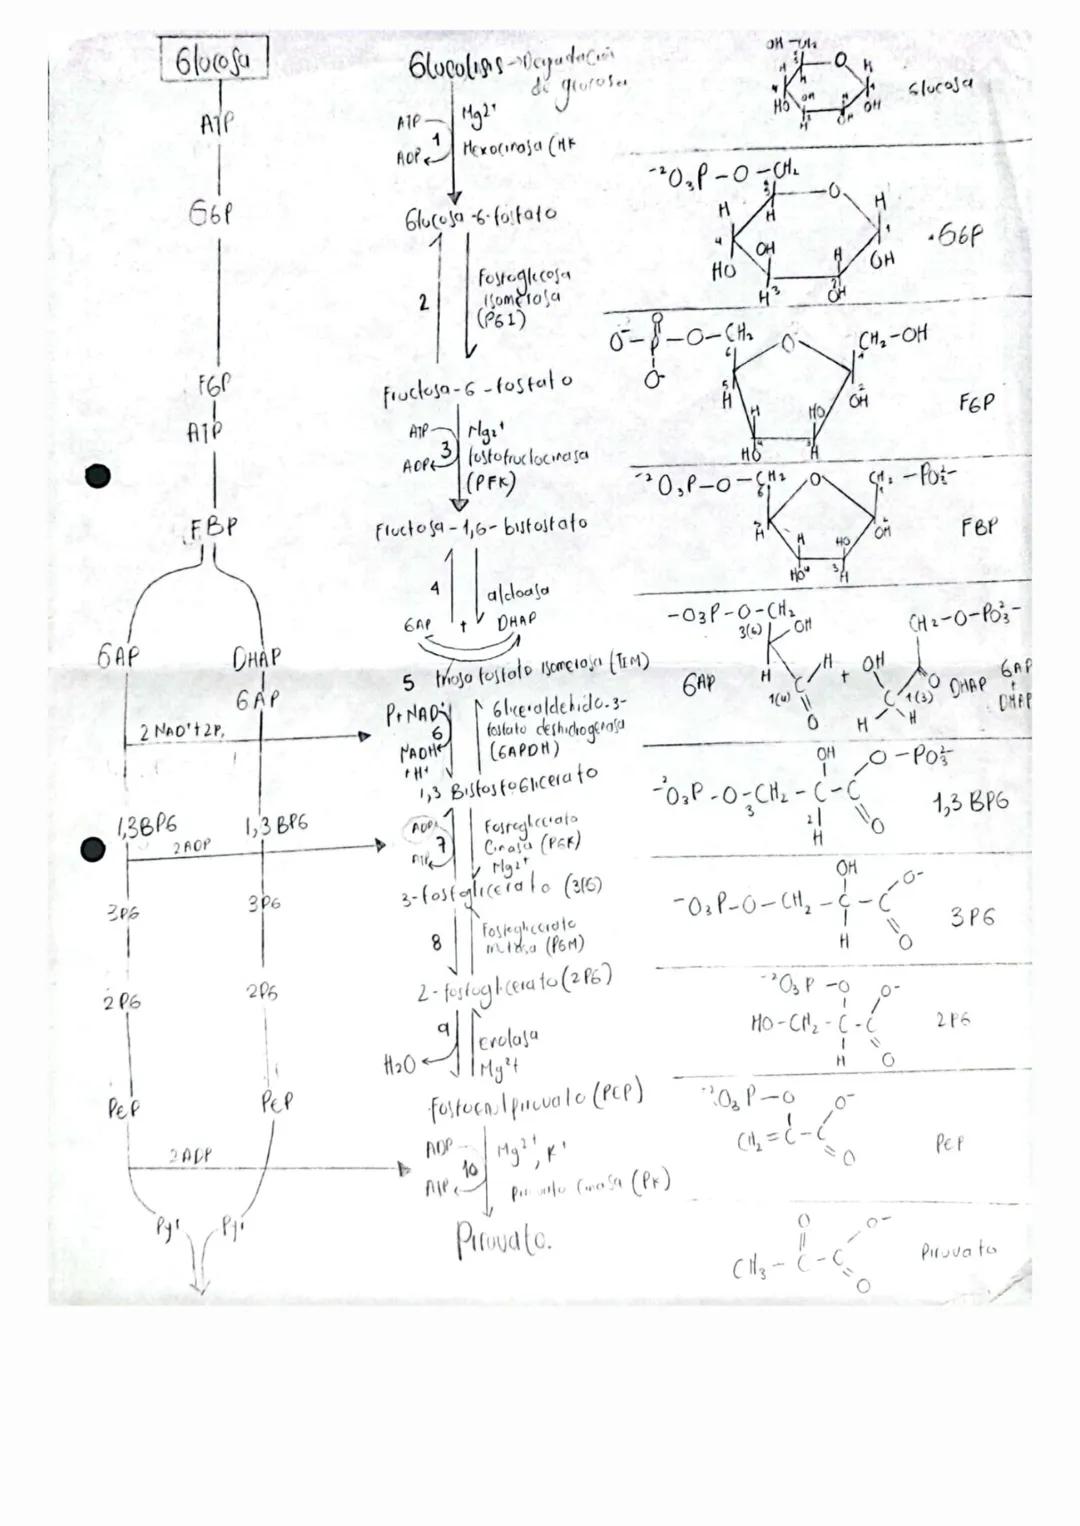 Glucosa
ATP
G6P
F6P
ATP
FBP
GAP
DHAP
GAP
2 NAD⁺+2Pi
1,3BPG
1,3 BPG
2ADP
3PG
3PG
2PG
2PG
PEP
PEP
2ADP
Pyr
Pyr
Glucolisis → Degradación
de glucosa
ATP
ADP
1
Mg2⁺
Hexocinasa (HK
Glucosa-6-fosfato
2
Fosfoglucosa
isomerasa
(PGI)
Fructosa-6-fosfato
ATP
ADP
3
Mg2⁺
fosfofructocinasa
(PFK)
Fructosa-1,6-bisfosfato
4
aldoasa
GAP + DHAP
5 triosa fosfato isomerasa (TIM)
Pi NAD⁺
6
NADH
+H⁺
Gliceraldehido-3-
fosfato deshidrogenasa
(GAPDH)
1,3 Bisfosfoglicerato
ADP
7
ATP
Fosfoglicerato
Cinasa (PGK)
Mg2⁺
3-fosfoglicerato (3PG)
8
Fosfoglicerato
mutasa (PGM)
2-fosfoglicerato (2PG)
9
H2O
Enolasa
Mg2⁺
fosfoenolpiruvato (PEP)
ADP
10
ATP
Mg2⁺, K⁺
Piruvato Cinasa (PK)
Piruvato.
OH-CH2
5
O
H
H
H
4
1
HO
OH
H
OH
H
3
OH
Glucosa
⁻²O3P-O-CH2
5
O
H
H
H
4
1
OH
H
OH
HO
H
3
2
OH
G6P
O⁻-P-O-CH2
O
O⁻
6
O
CH2-OH
1
5
H
H
HO
2
OH
4
HO
3
H
F6P
⁻²O3P-O-CH2
6
O
CH2-PO3²⁻
1
5
H
H
HO
2
OH
HO
4
3
H
FBP
-O3P-O-CH2
3(6)
OH
H
C
H
1(4)
O
GAP
+
CH2-O-PO3²⁻
OH
O
C
1(3)
H
H
DHAP
GAP
+
DHAP
⁻²O3P-O-CH2-C-C
OH
O-PO3²⁻
3
2
H
O
1,3 BPG
⁻O3P-O-CH2-C-C
OH
O⁻
H
O
3PG
⁻²O3P-O
O⁻
HO-CH2-C-C
H
O
2PG
⁻²O3P-O
O⁻
CH2=C-C
O
PEP
O
O⁻
CH3-C-C
O
Piruvato